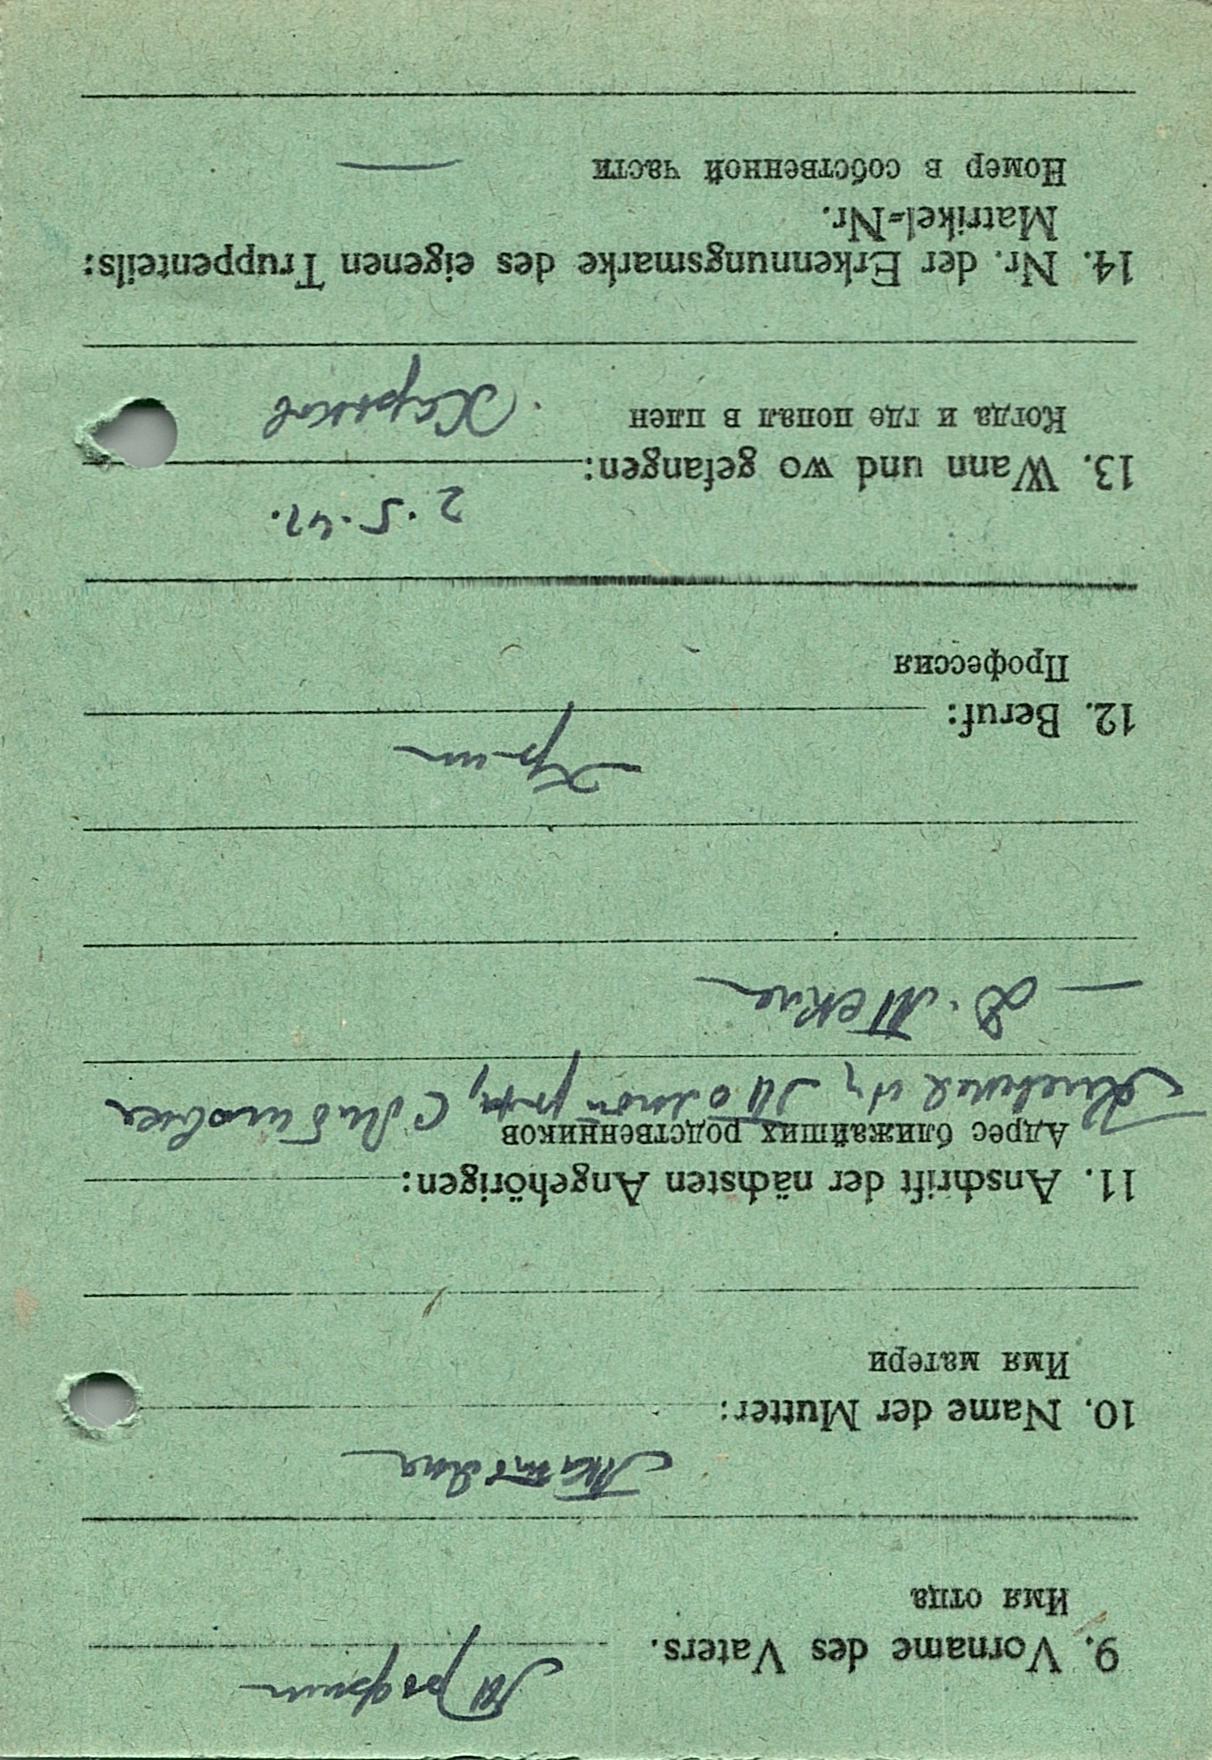 9. Vorname des Vaters.
Имя отца
Трофим
10. Name der Mutter:
Имя матери
11. Anschrift der nächsten Angehörigen:
Адрес ближайших родственников
12. Beruf:
Профессия
2.5.42.
13. Wann und wo gefangen:
Когда и где попал в плен
Харьков
14. Nr. der Erkennungsmarke des eigenen Truppenteils:
Matrikel=Nr.
Номер в собственной части —